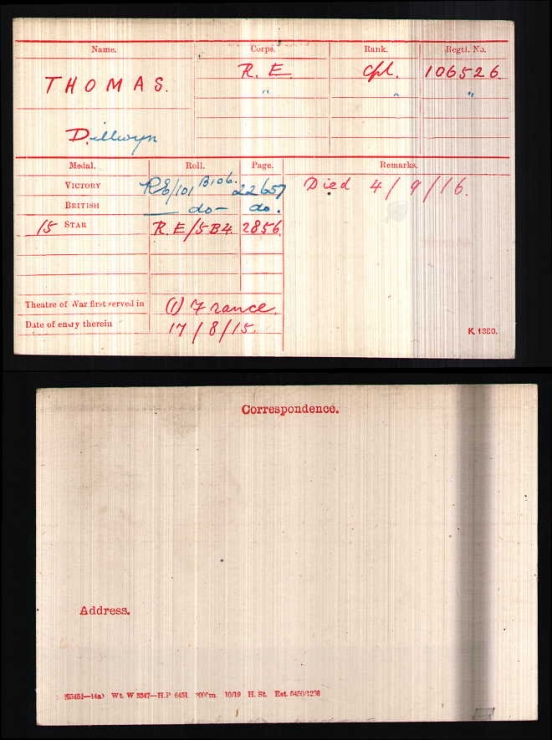 Name. Corps. Rank. Regtl. No.
THOMAS. R. E. Cpl. 106526
" " "
Dillwyn
Medal. Roll. Page. Remarks.
VICTORY RE/101 B106. 22657 Died 4/9/16.
BRITISH — do— do.
15 STAR R.E/5B4 2856
Theatre of War first served in (1) France.
Date of entry therein 17/8/15.
K. 1380.
Correspondence.
Address.
Wt. W 5347—H.P 10/19 H. St.